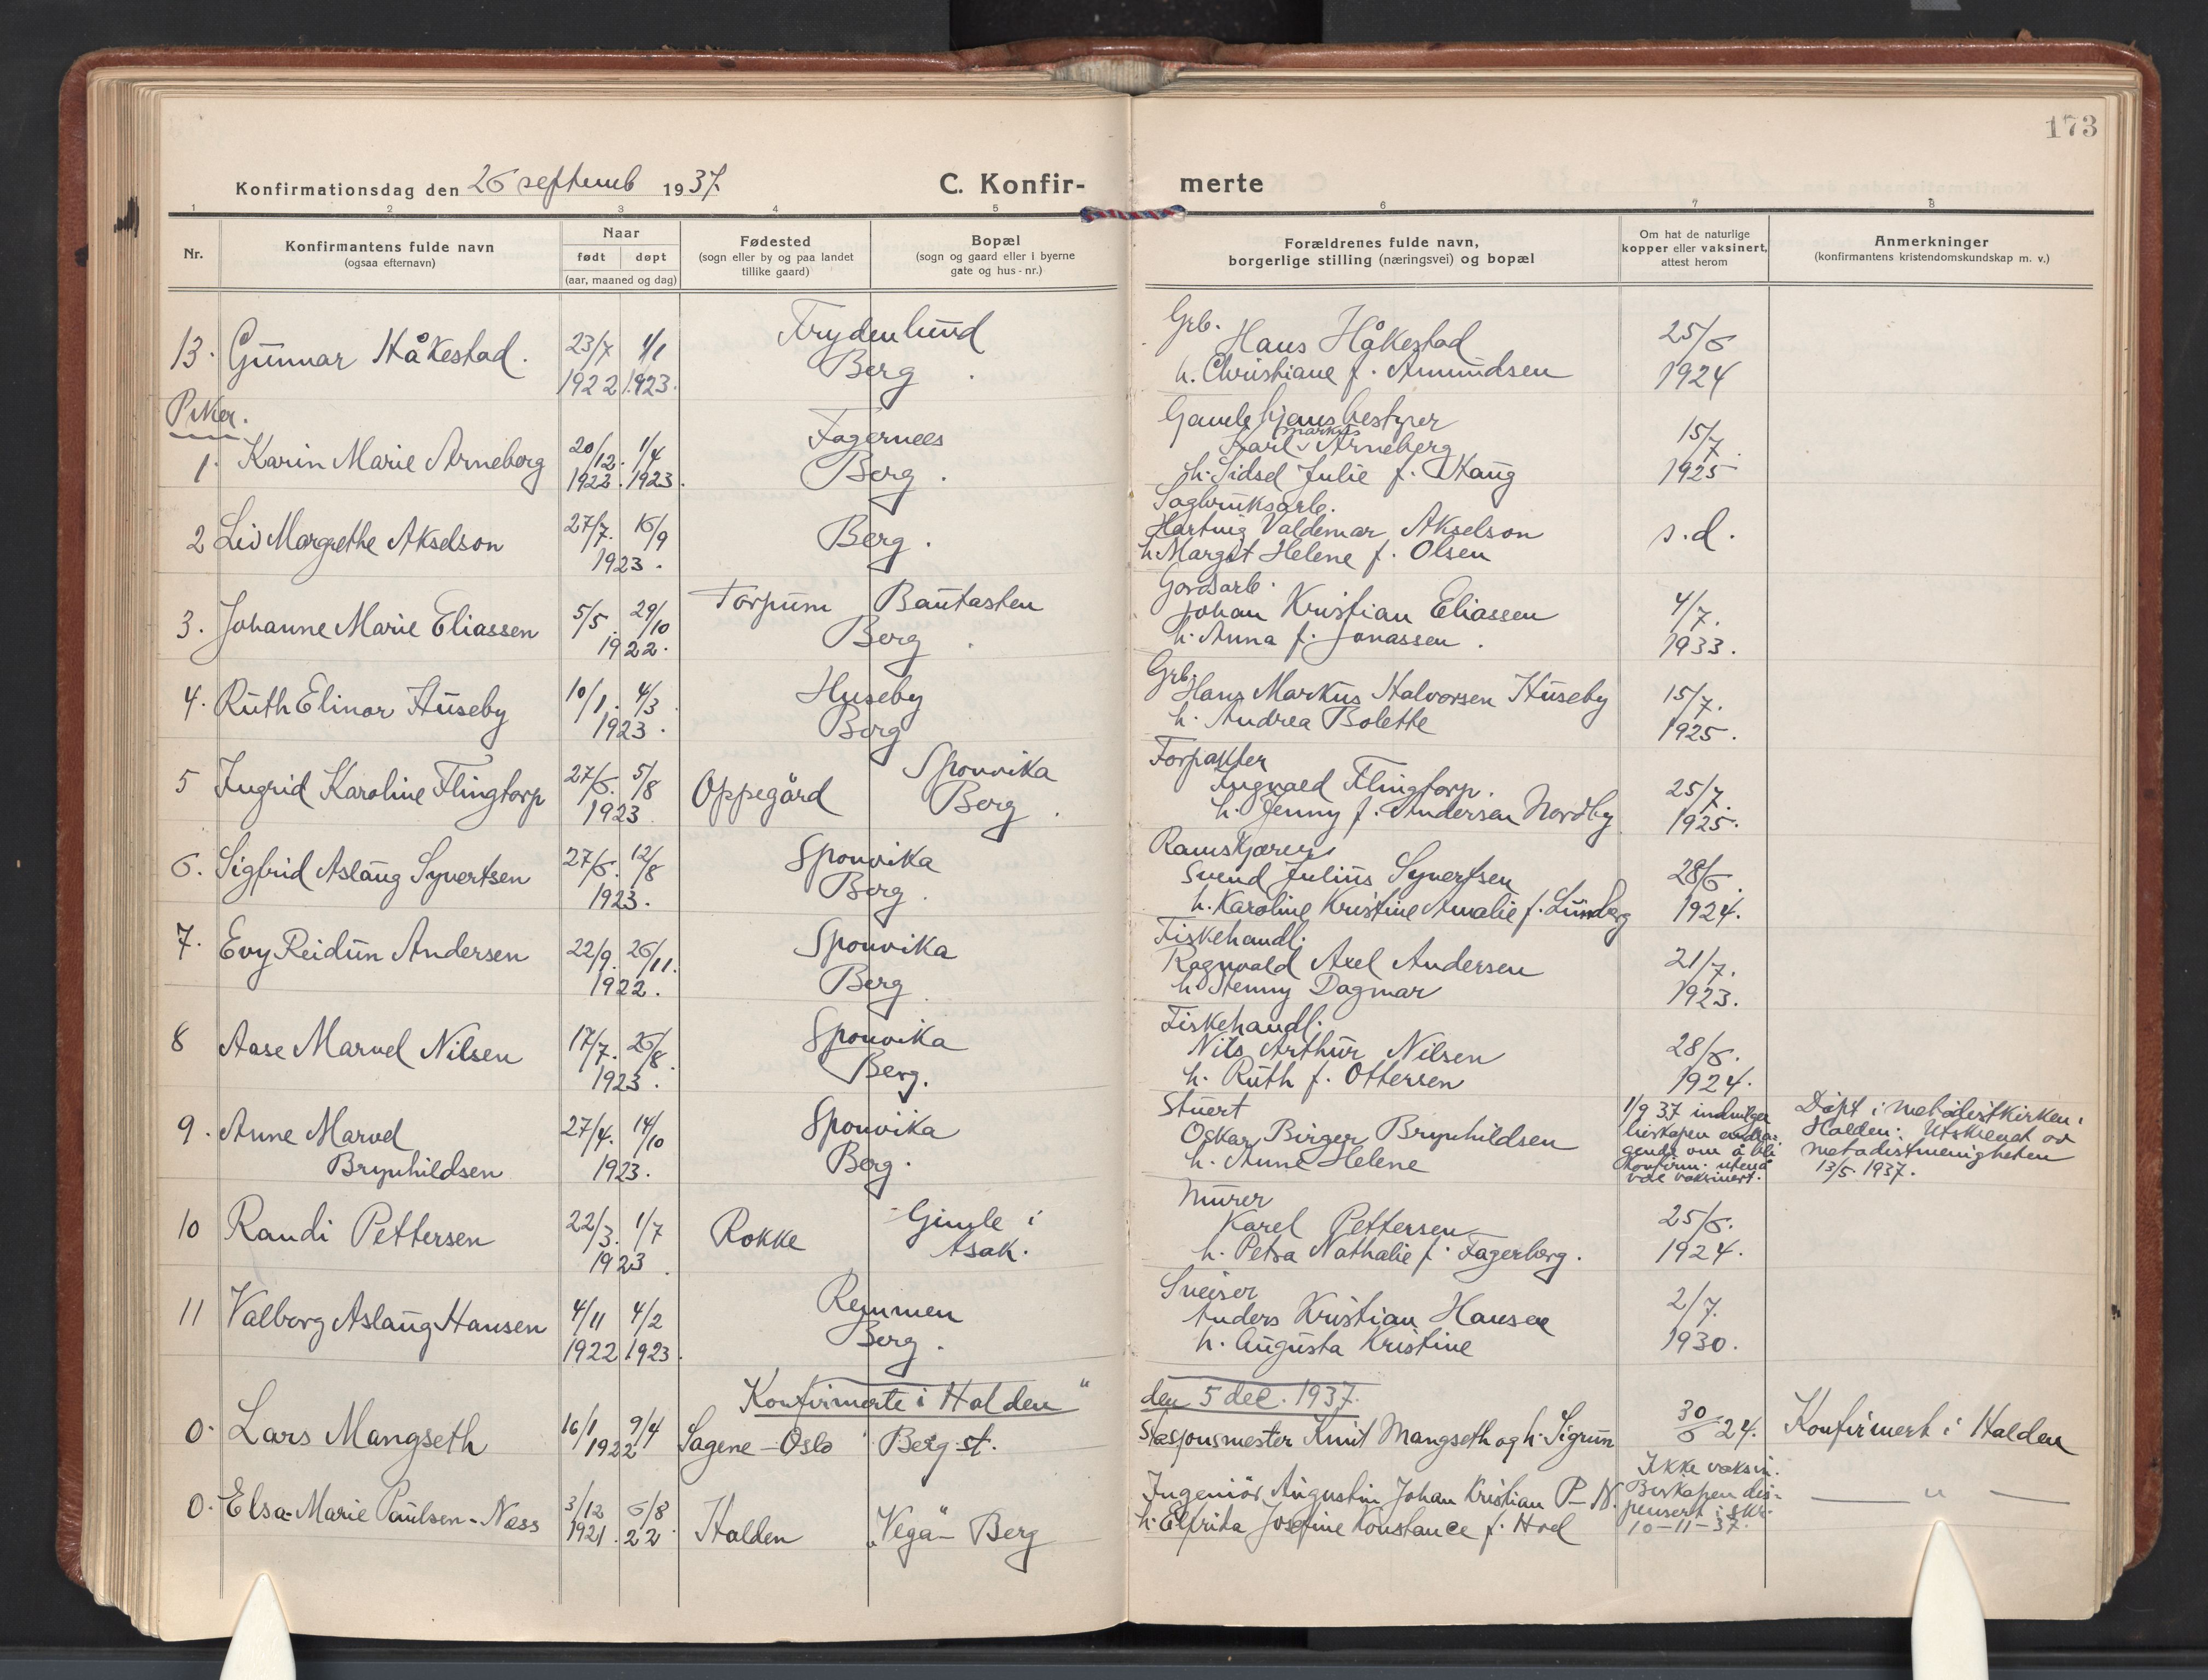 173
Konfirmationsdag den 26 septemb 1937
C. Konfir- merte
1 2 3 4 5 6 7 8
Nr.
Konfirmantens fulde navn
(ogsaa efternavn)
Naar
født døpt
(aar, maaned og dag)
Fødested
(sogn eller by og paa landet
tillike gaard)
Bopæl
(sogn og gaard eller i byerne
gate og hus-nr.)
Forældrenes fulde navn,
borgerlige stilling (næringsvei) og bopæl
Om hat de naturlige
kopper eller vaksinert,
attest herom
Anmerkninger
(konfirmantens kristendomskundskap m. v.)
13. Gunnar Håkestad.
23/7 1922 1/1 1923.
Frydenlund
Berg.
Grb.
Hans Håkestad
h. Christiane f. Amundsen
25/6
1924
Piker.
1. Karin Marie Arneberg
20/12. 1922. 1/4 1923.
Fagernes
Berg.
Gamlehjemsbestyrer
Karl Markus Arneberg
h. Sidsel Julie f. Skaug
15/7.
1925
2 Liv Margrethe Akselson
27/7. 16/9
1923.
Berg.
Sagbruksarb.
Hartvig Valdemar Akselson
h. Margit Helene f. Olsen
s.d.
3. Johanne Marie Eliassen
5/5. 29/10
1922.
Torpum Bautasten
Berg.
Gårdsarb.
Johan Kristian Eliassen
h. Anna f. Jonassen.
4/7.
1933.
4. Ruth Elinor Huseby
10/1. 4/3
1923.
Huseby
Berg
Grb.
Hans Markus Halvorsen Huseby
h. Andrea Bolette
15/7.
1925.
5 Ingrid Karoline Flingtorp
27/6. 5/8
1923
Oppegård
Sponvika
Berg.
Forpakter
Ingvald Flingtorp.
h. Jenny f. Andersen Nordby
25/7.
1925.
6. Sigfrid Aslaug Syvertsen
27/6. 12/8
1923.
Sponvika
Berg.
Svend Julius Syvertsen
h. Karoline Kristine Amalie f. Lundberg
28/6.
1924.
7. Evy Reidun Andersen
22/9. 26/11.
1922.
Sponvika
Berg
Fiskehandl.
Ragnvald Axel Andersen
h. Henny Dagmar
21/7.
1923.
8 Aase Marvel Nilsen
17/7. 26/8.
1923.
Sponvika
Berg.
Fiskehandl.
Nils Arthur Nilsen
h. Ruth f. Ottersen
28/6.
1924.
9. Anne Marvel
Brynhildsen
27/4. 14/10
1923.
Sponvika
Berg.
Stuert
Oskar Birger Brynhildsen
h. Anne Helene
1/9 37 indvilger
biskopen andra-
gende om å bli
konfirm. uten å
være vaksinert.
Døpt i metodistkirken i
Halden. Utskrevet av
metodistmenigheten
13/5. 1937.
10 Randi Pettersen
22/3. 1/7
1923.
Rokke
Gimle i
Asak.
Murer
Karel Pettersen
h. Petra Nathalie f. Fagerberg.
25/6.
1924.
11 Valborg Aslaug Hansen
4/11 1922 4/2 1923.
Remmen
Berg.
Sveiser
Anders Kristian Hansen
h. Augusta Kristine
2/7.
1930.
Konfirmerte i Halden" den 5 dec. 1937.
0. Lars Mangseth
16/1 9/4
1922
Sagene-Oslo Berg st.
Stasjonsmester Knut Mangseth og h. Sigrun
30/6 24.
Konfirmert i Halden
0. Elsa-Marie Paulsen-Næss
3/12 1921. 6/8 22.
Halden "Vega"- Berg
Ingeniør Augustin Johan Kristian P-N.
h. Elfrida Josefine Konstance f. Hoel
Ikke vaksin.
Biskopen dis-
pensert i skr.
10-11-37.
— " —